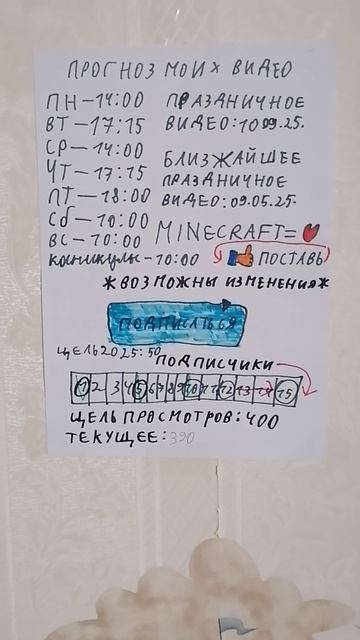 ПРОГНОЗ МОИХ ВИДЕО
ПН-14:00
ВТ-17:15
СР-14:00
ЧТ-17:15
ПТ-18:00
Сб-10:00
ВС-10:00
каникулы-10:00
ПРАЗДНИЧНОЕ
ВИДЕО:10.09.25.
БЛИЗЖАЙШЕЕ
ПРАЗДНИЧНОЕ
ВИДЕО:09.05.25.
MINECRAFT=
ПОСТАВЬ
*ВОЗМОЖНЫ ИЗМЕНЕНИЯ*
ПОДПИСАТЬСЯ
ЦЕЛЬ2025:50
ПОДПИСЧИКИ
1 2 3 4 5 6 7 8 9 10 11 12 13 14 15
ЦЕЛЬ ПРОСМОТРОВ:400
ТЕКУЩЕЕ:390